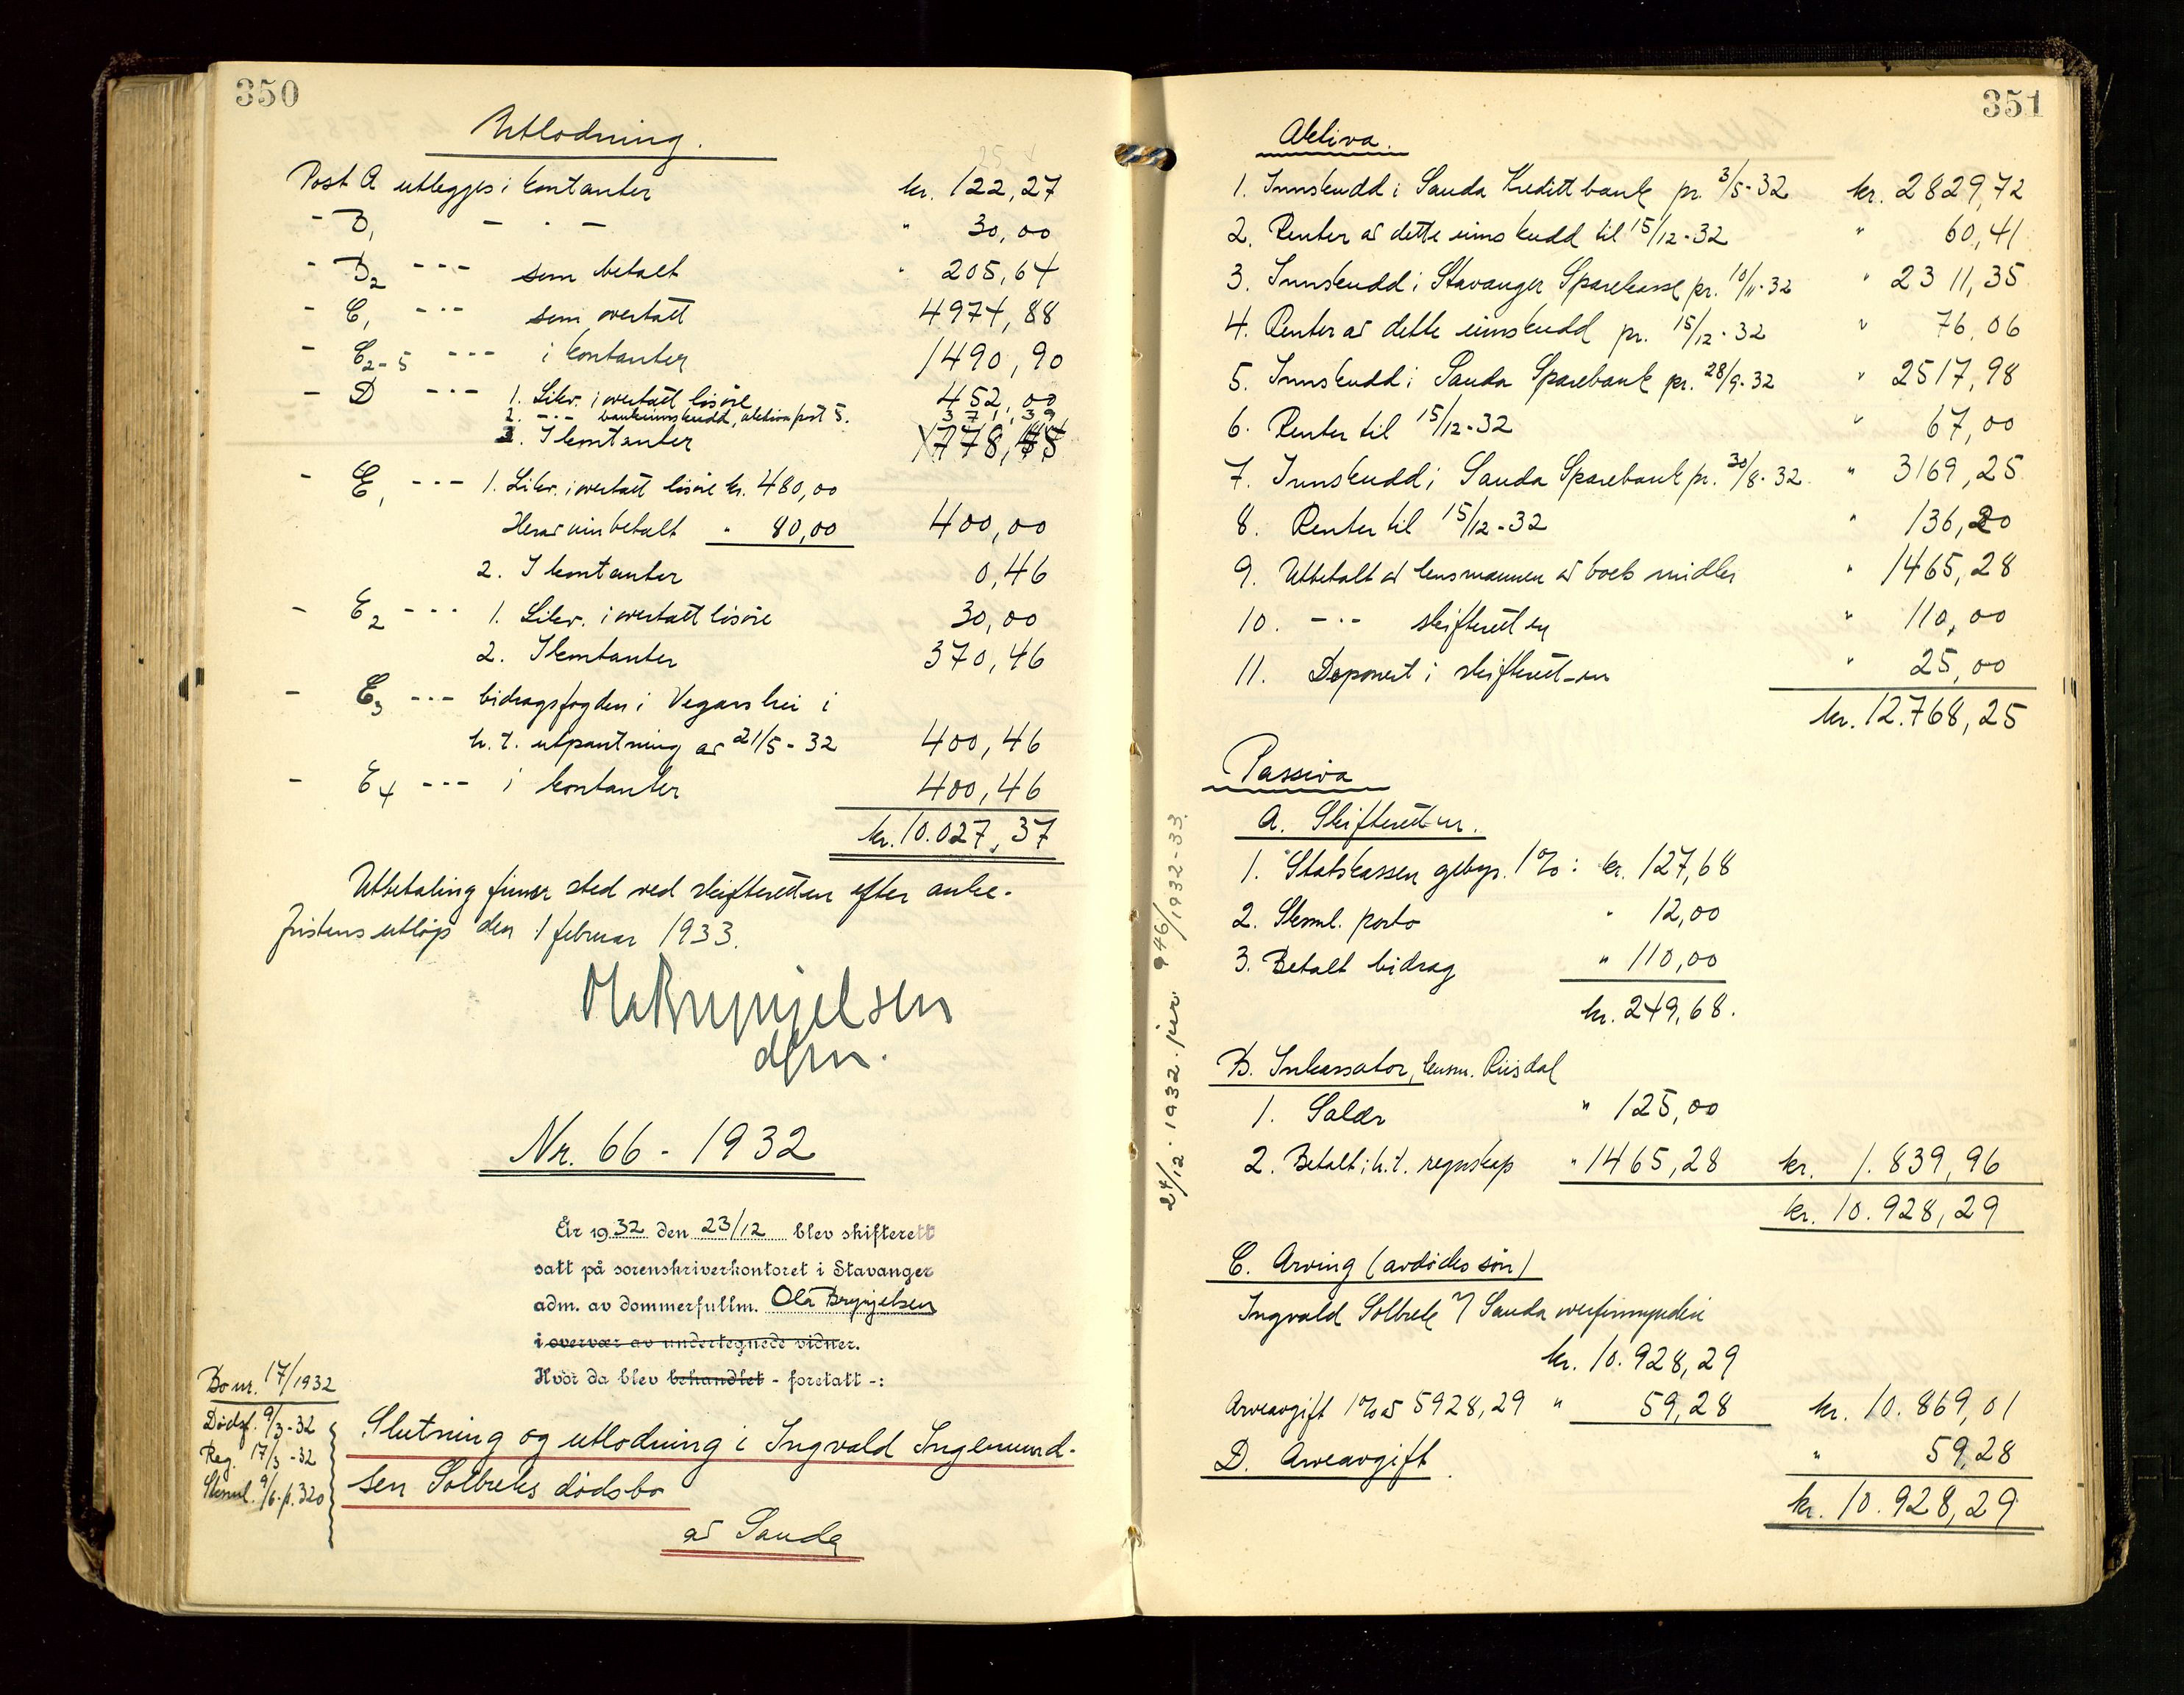 350
Utlodning.
Post A utlegges i kontanter kr. 122,27
- B1 - · - " 30,00
- B2 - · - som betalt " 205,64
- C1 - · - som overtatt 4974,88
- C2-5 - · - i kontanter 1490,90
- D - · - 1. Likv. i overtatt løsøre 452,00
2. - · - bankinnskudd, aktiva post 5.
3. I kontanter
- E1 - · - 1. Likv. i overtatt løsøre kr. 480,00
Herav innbetalt " 80,00 400,00
2. I kontanter 0,46
- E2 - · - 1. Likv. i overtatt løsøre 30,00
2. I kontanter 370,46
- E3 - · - bidragsfogden i Vegårshei i
h.t. utpantning av 21/5-32 400,46
- E4 - · - i kontanter 400,46
kr. 10.027,37
Utbetaling finner sted ved skifteretten efter anke-
fristens utløp den 1 februar 1933.
Ola Brynjelsen
dfm.
Nr. 66 - 1932
År 1932 den 23/12 blev skifterett
satt på sorenskriverkontoret i Stavanger
adm. av dommerfullm. Ola Brynjelsen
i overvær av undertegnede vidner.
Hvor da blev behandlet - foretatt -:
Bo nr. 17/1932
Dødsf. 9/3-32
Reg. 17/3-32
Skml. 9/6.p.320
Slutning og utlodning i Ingvald Ingemund-
sen Solbreks dødsbo
av Sauda
351
Aktiva.
1. Innskudd i Sauda Kredittbank pr. 3/5-32 kr. 2829,72
2. Renter av dette innskudd til 15/12-32 " 60,41
3. Innskudd i Stavanger Sparekasse pr. 10/11-32 " 2311,35
4. Renter av dette innskudd pr. 15/12-32 " 76,06
5. Innskudd i Sauda Sparebank pr. 28/9-32 " 2517,98
6. Renter til 15/12-32 " 67,00
7. Innskudd i Sauda Sparebank pr. 30/8-32 " 3169,25
8. Renter til 15/12-32 " 136,20
9. Utbetalt av lensmannen av boets midler " 1465,28
10. - · - skifteretten " 110,00
11. Deponert i skifteretten " 25,00
kr. 12.768,25
Passiva
A. Skifteretten.
1. Statskassen gebyr. 1%: kr. 127,68
2. Skml. porto " 12,00
3. Betalt bidrag " 110,00
kr. 249,68.
B. Inkassator, lensm. Riisdal
1. Salær " 125,00
2. Betalt i h.t. regnskap " 1465,28 kr. 1.839,96
kr. 10.928,29
C. Arving (avdødes søn)
Ingvald Solbrek Sauda
kr. 10.928,29
Arveavgift 1% av 5928,29 " 59,28 kr. 10.869,01
D. Arveavgift. " 59,28
kr. 10.928,29
24/12.1932. jnr. 946/1932-33.